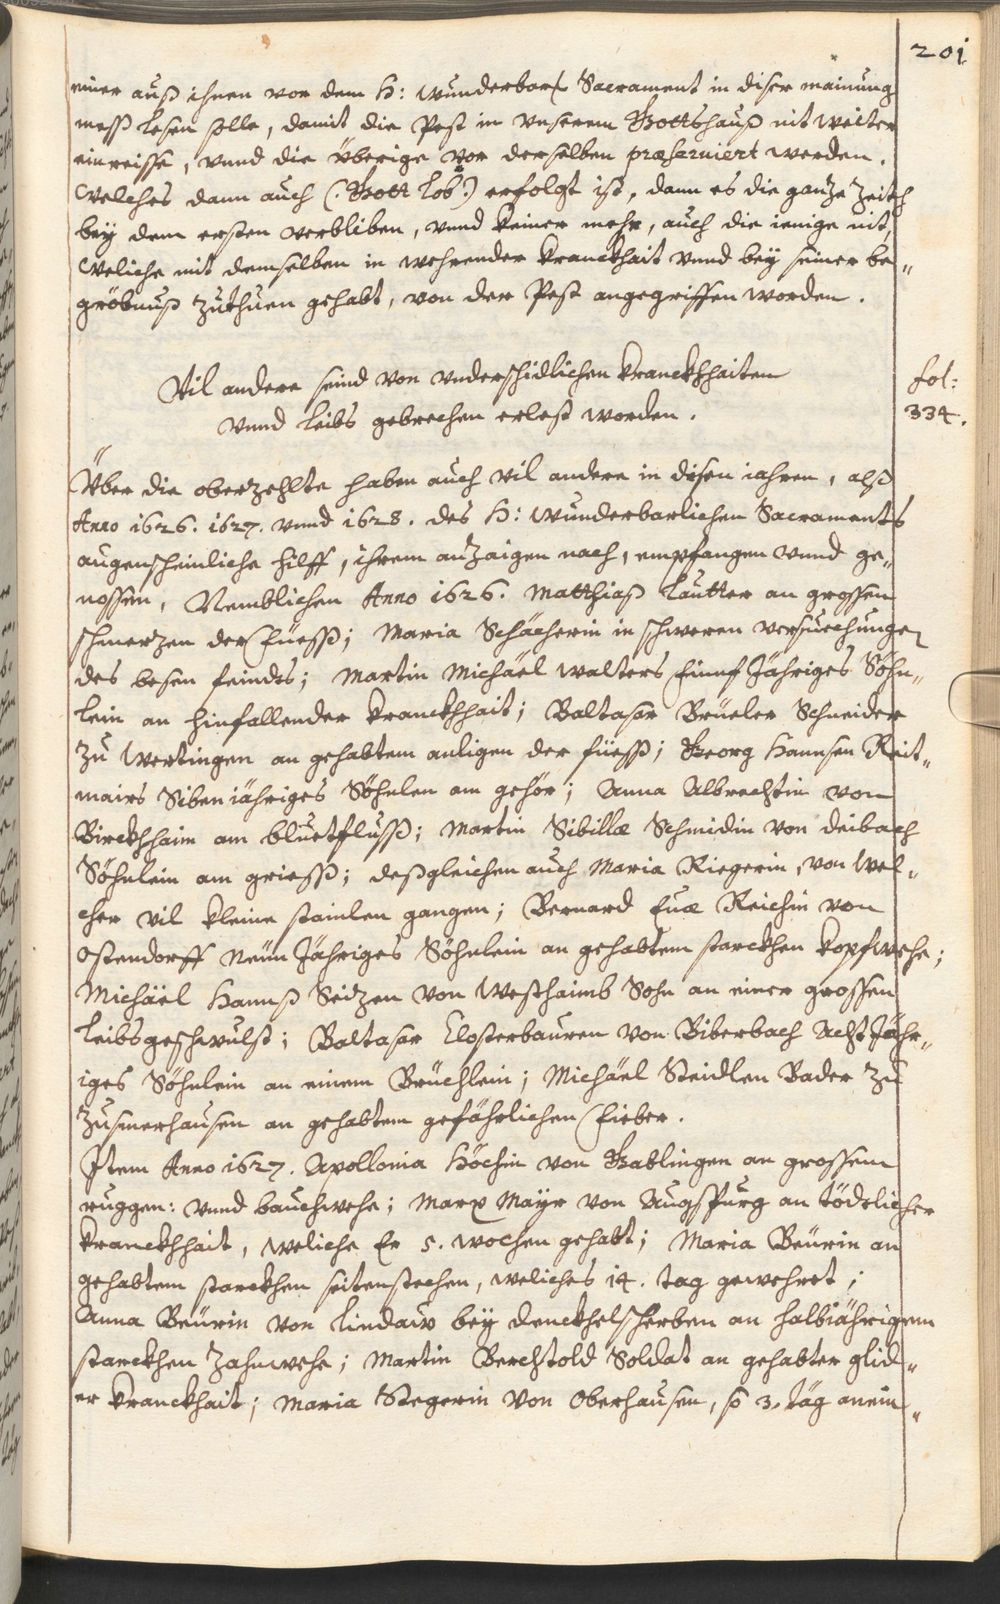 201
einer auß ihnen vor dem H: Wunderbarl Sacrament in diser mainung
mess lesen solle, damit die Pest in vnserem Gottshauß nit weiter
einreisse, vnnd die überige vor derselben præseruiert werden.
Welches dann auch (: Gott lob :) erfolgt ist, dann es die ganze Zeit
bey dem ersten verbliben, vnnd keiner mehr, auch die ienige nit,
Weliche mit demselben in wehrender kranckhait vnnd bey seiner be„
gröbnuß zuthuen gehabt, von der Pest angegriffen worden.
Vil andere seind von vnderschidlichen kranckhhaiten
vnnd leibs gebrechen erlest worden.
fol:
334.
Über die oberzehlte haben auch vil andere in disen iahren, alß
Anno 1626. 1627. vnnd 1628. des H: Wunderbarlichen Sacraments
augenscheinliche hilff, ihrem anzaigen nach, empfangen vnnd ge„
nossen, Nemblichen Anno 1626. Matthiaß Lautter an grossen
schmerzen der füess; Maria Schächerin in schweren versuechungen
des besen feindts; Martin Michäel Walters fünf Jähriges Söhn„
lein an hinfallender kranckhhait; Baltasar Brüeler Schneider
zu Wertingen an gehabtem anligen der füess; Georg Hannsen Reit„
mairs Siben iähriges Söhnlen am gehör; Anna Albrechtin von
Birckhhaim am bluetfluss; Martin Sibillæ Schmidin von Deibach
Söhnlein am griess; deßgleichen auch Maria Riegerin, von wel„
cher vil kleine stainlen gangen; Bernard Euæ Reichin von
Ostendorff Neün Jähriges Söhnlein an gehabtem starckhen kopfwehe;
Michäel Hannß Seitzen von Westhaimb Sohn an einer grossen
leibsgeschwulst; Baltasar Closterbauren von Biberbach Acht Jähr„
iges Söhnlein an einem Brüchlein; Michäel Steidlen Bader zu
Zusmerhausen an gehabtem gefährlichen fieber.
Item Anno 1627. Apollonia Höchin von Gablingen an grossem
ruggen: vnnd bauchwehe; Marx Mayr von Augspurg an tödtlicher
kranckhhait, weliche Er 5. wochen gehabt; Maria Beürin an
gehabtem starckhen seitenstechen, weliches 14. tag gewehret;
Anna Beürin von Lindauw bey Denckhelscherben an halbiährigem
starckhen zahnwehe; Martin Berchtold Soldat an gehabter glid„
er kranckhait; Maria Stegerin von Oberhausen, so 3. täg anein„